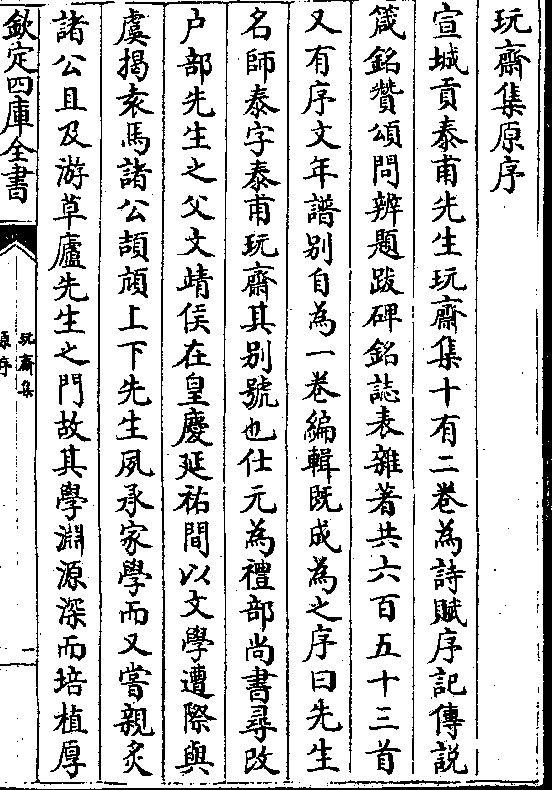 玩齋集原序
宣城貢泰甫先生玩齋集十有二卷為詩賦序記傳説
箴銘贊頌問辨題跋碑銘誌表雜著共六百五十三首
又有序文年譜别自為一卷編輯既成為之序曰先生
名師泰字泰甫玩齋其别號也仕元為禮部尚書尋改
户部先生之父文靖侯在皇慶延祐間以文學遭際與
虞揭袁馬諸公頡頏上下先生夙承家學而又嘗親炙
諸公且及游草廬先生之門故其學淵源深而培植厚
欽定四庫全書
玩齋集
原序
一